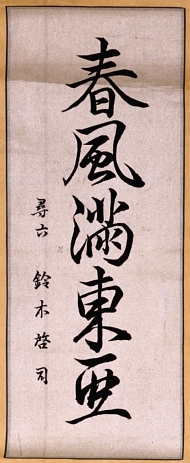 春風滿東亜
尋六　鈴木啓司